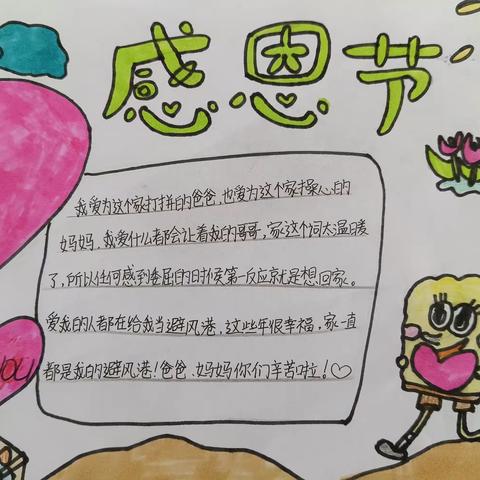 感恩节
我爱为这个家打拼的爸爸，也爱为这个家操心的
妈妈，我爱什么都会让着我的哥哥，家这个词太温暖
了，所以任何感到委屈的时候第一反应就是想回家。
爱我的人都在给我当避风港，这些年很幸福，家一直
都是我的避风港！爸爸、妈妈你们辛苦啦！♡
YOU